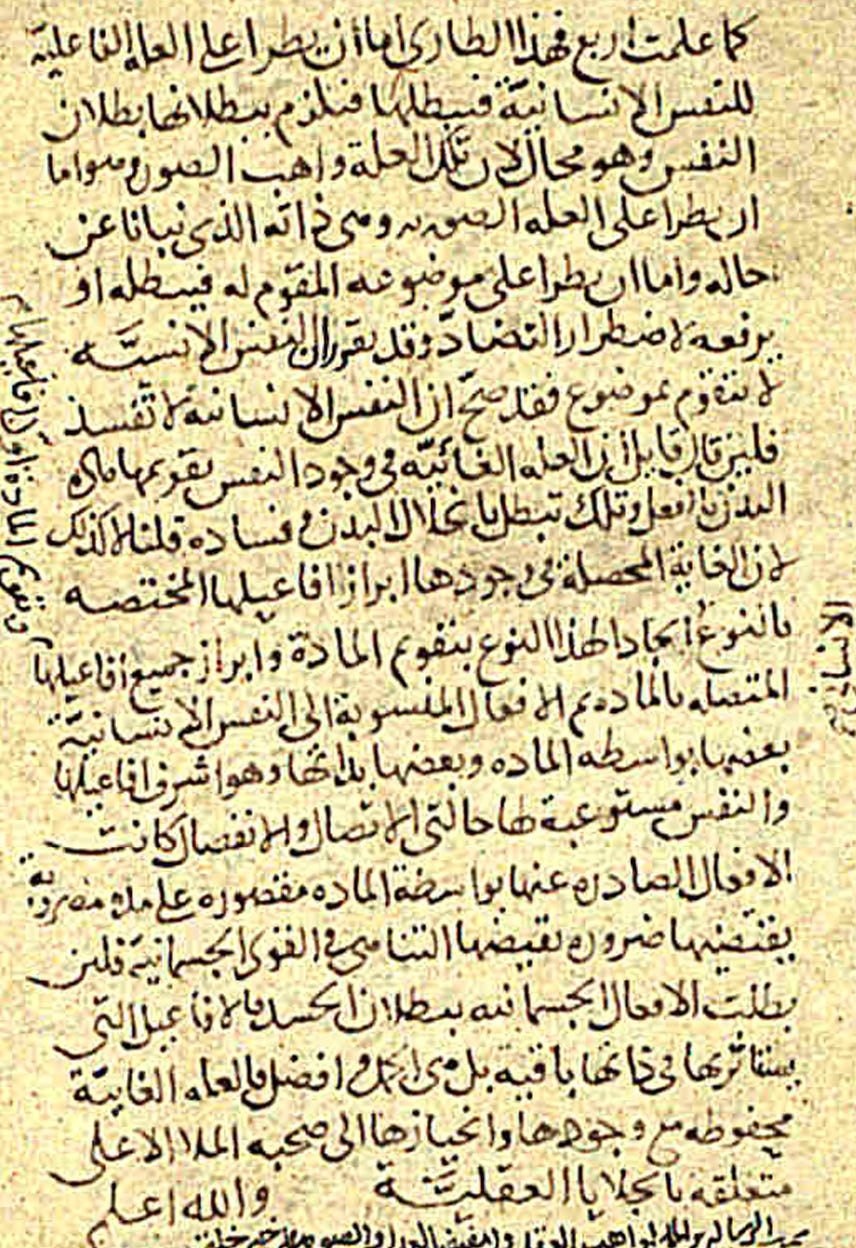 كما علمت اربع فهذا الطارى اما ان يطرا على العلة الفاعلية
للنفس الانسانية فيبطلها فيلزم ببطلانها بطلان
النفس وهو محال لان تلك العلة واهب الصور وهو اما
ان يطرا على العله الصوريه وهى ذاته الذى نبانا عن
حاله واما ان يطرا على موضوعه المقوم له فيبطله او
يرفعه لاضطرار التضاد وقد تقرر ان النفس الانسيّه
لا تتقوم بموضوع فقد صحّ ان النفس الانسانية لا تفسد
فلئن قال قايل ان العله الغائيّه فى وجود النفس تقويمها مادة
البدن بالفعل وتلك تبطل بانحلال البدن وفساده قلنا لا كذلك
لان الغاية المحصلة فى وجودها ابراز افاعيلها المختصه
بالنوع ايجادا لهذا النوع بتقويم المادة وابراز جميع افاعيلها
المتصله بالماده ثم الافعال المنسوبة الى النفس الانسانيّة
بعضها بواسطه الماده وبعضها بذاتها وهو اشرف افاعيلها
والنفس مستوعبة لها حالتى الاتصال والانفصال كانت
الافعال الصادره عنها بواسطة الماده مقصوره على مده
يقتضيها ضروره نقيضها التناهى فى القوى الجسمانية فلئن
بطلت الافعال الجسمانيه ببطلان الجسد فالافاعيل التى
يستاثر بها فى ذاتها باقية بل هى اكمل وافضل فالعله الغاييّة
محفوظه مع وجودها وانحيازها الى صحبه الملا الاعلى
متعلقه بالجلايا العقليّة والله اعلم
الانسانى
وتقوم المادة